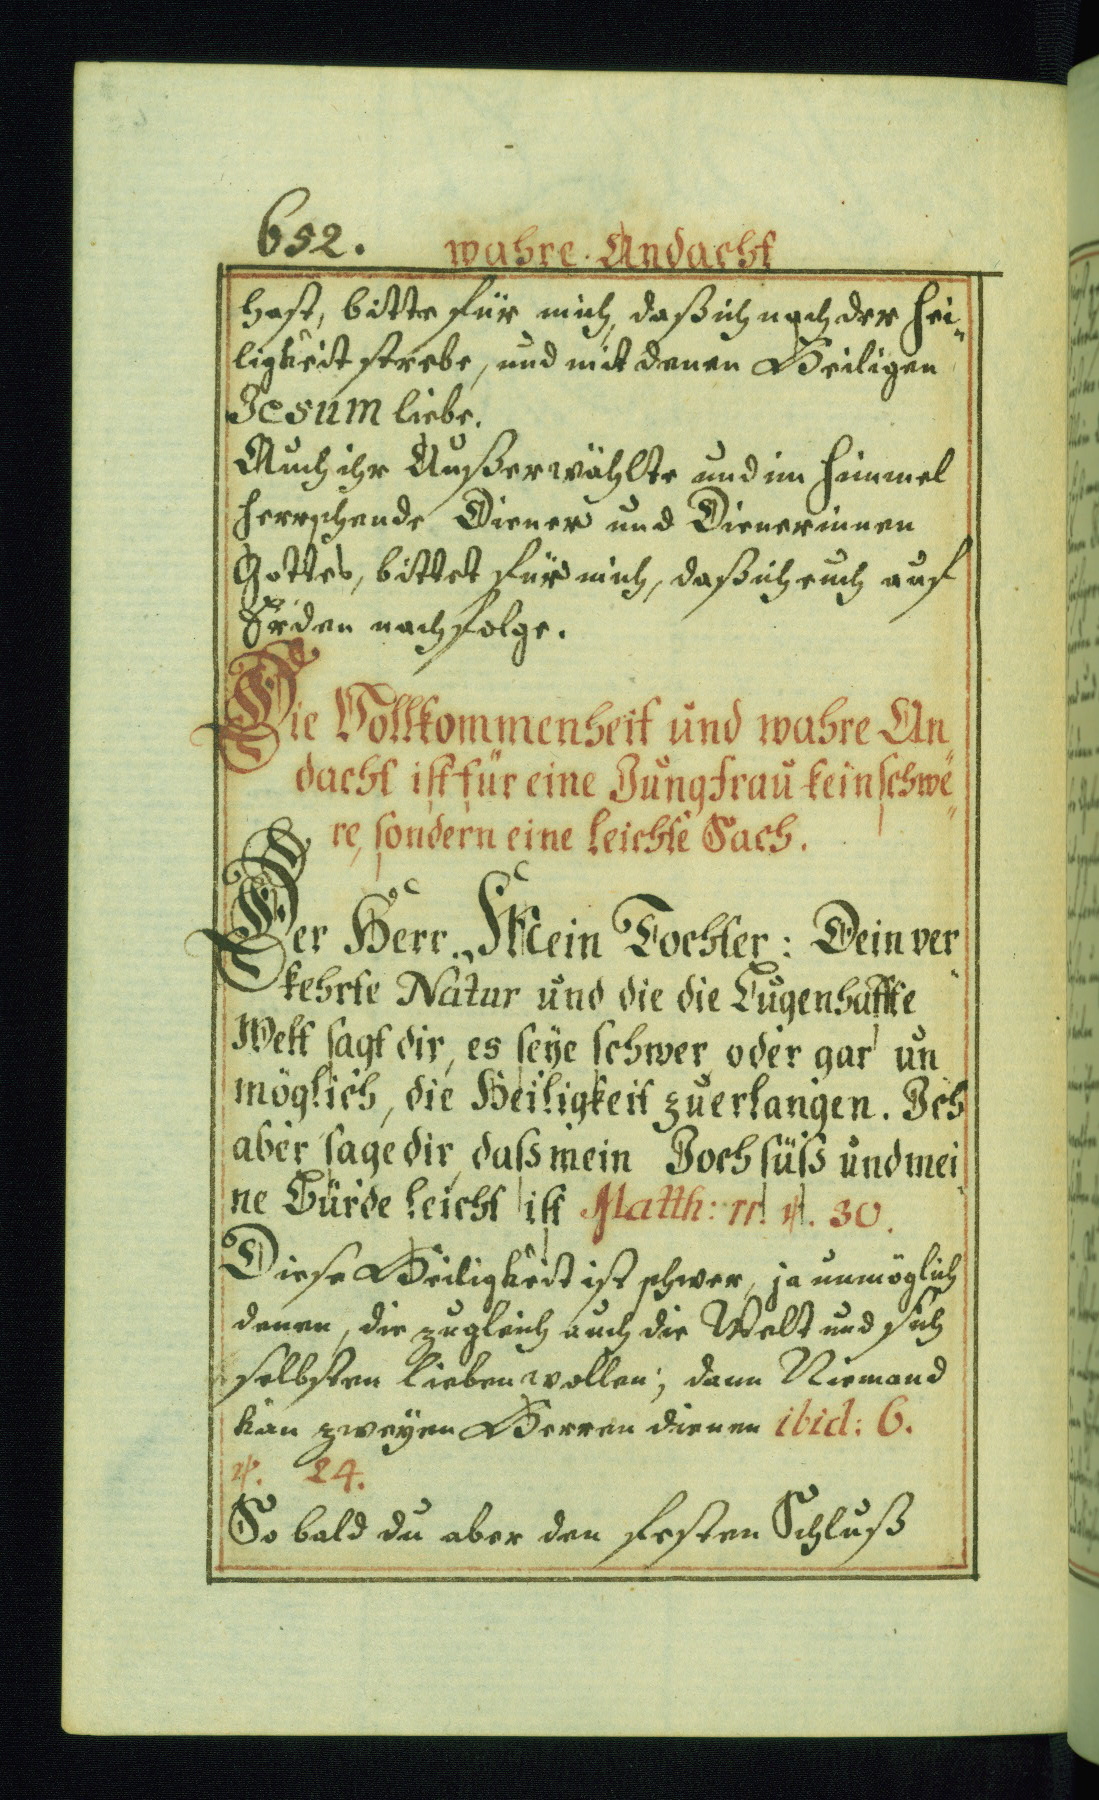 652.
wahre Andacht
hast, bitte für mich, daß ich nach der Hei„
ligkeit strebe, und mit denen Heiligen
Jesum liebe.
Auch ihr Außerwählte und im Himmel
herrschende Diener und Dienerinnen
Gottes, bittet für mich, daß ich euch auf
Erden nachfolge.
Die Vollkommenheit und wahre An„
dacht ist für eine Jungfrau kein schwe„
re, sondern eine leichte Sach.
Der Herr. Mein Tochter: Dein ver„
kehrte Natur und die die Lugenhaffte
Welt sagt dir, es seye schwer oder gar un
möglich, die Heiligkeit zuerlangen. Ich
aber sage dir, dass mein Joch süss und mei„
ne Bürde leicht ist Matth: 11. ℣. 30.
Diese Heiligkeit ist schwer, ja unmöglich
denen, die zugleich auch die Welt und sich
selbsten lieben wollen; dann Niemand
kan zweyen Herren dienen ibid: 6.
℣. 24.
So bald du aber den festen Schluß